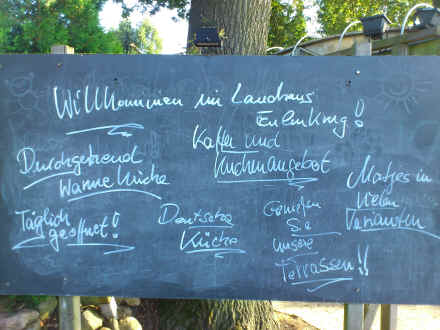 Willkommen im Landhaus
Eulenkrug!
Kaffee und
Kuchenangebot
Durchgehend
Warme Küche
Matjes in
vielen
Varianten
Täglich
geöffnet!
Deutsche
Küche
Genießen
Sie
unsere
Terrassen!!